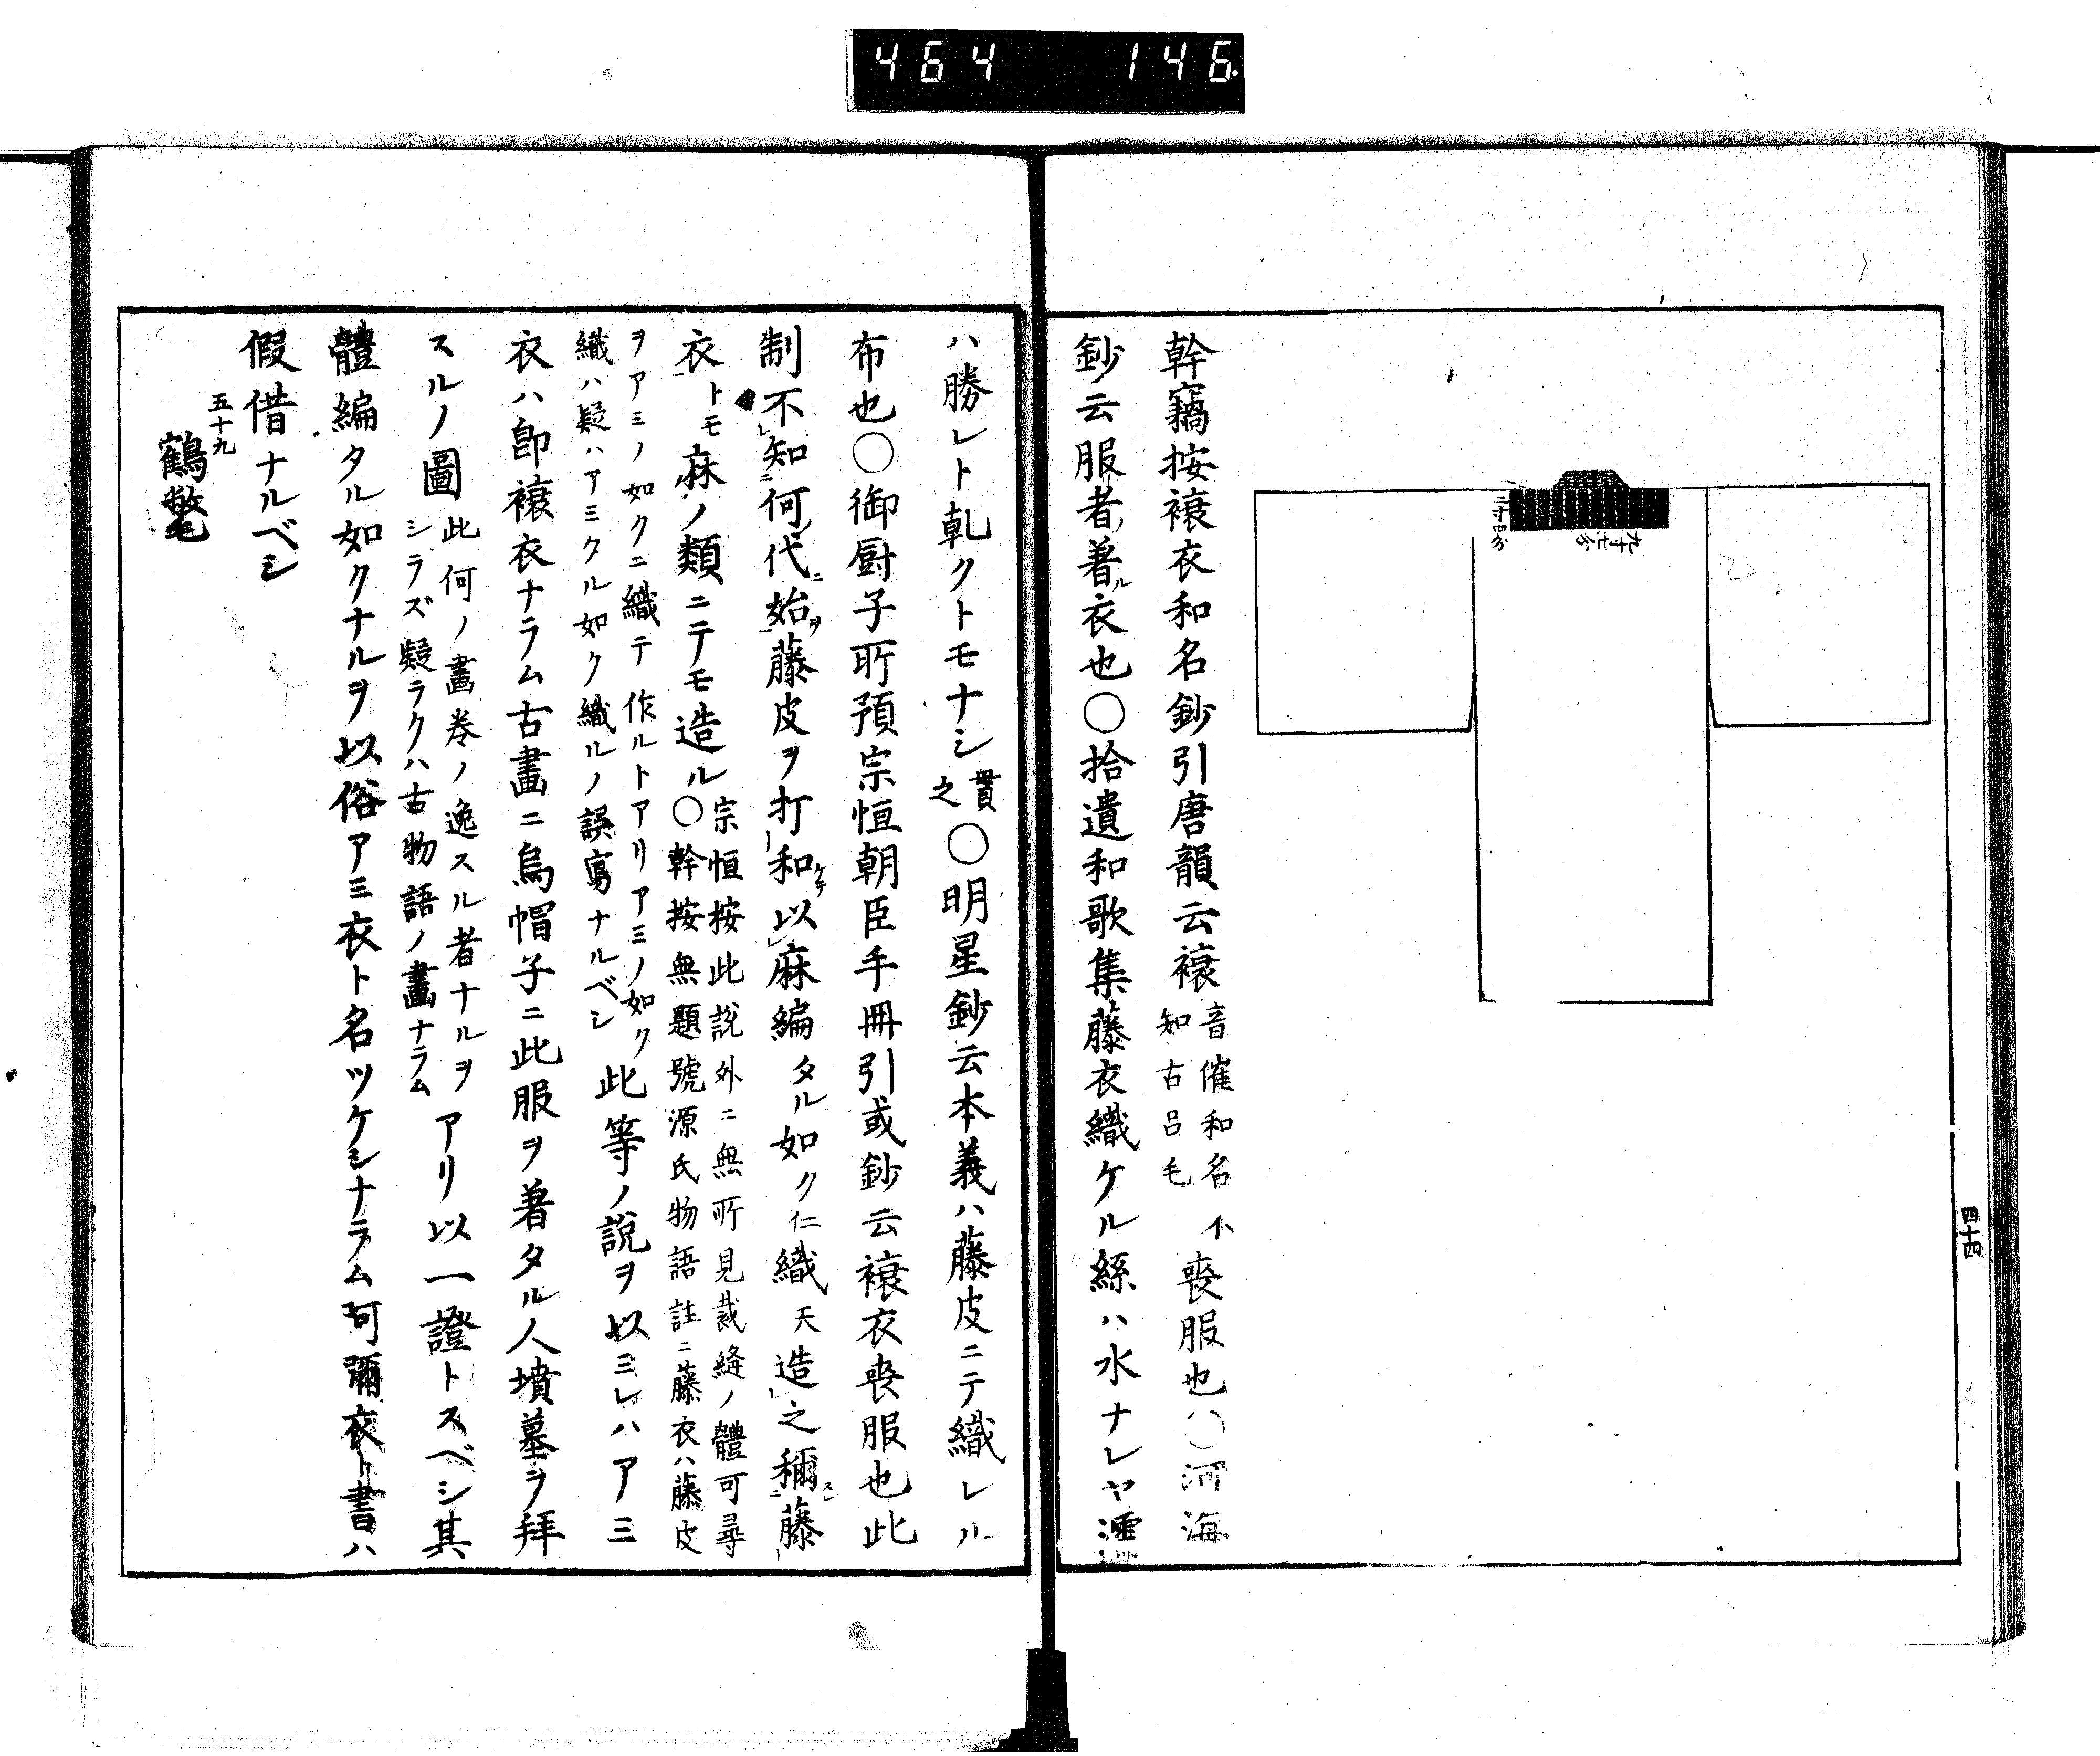 464 146
四十四
二寸四分
九寸七分
幹竊按縗衣和名鈔引唐韻云縗音催和名不知古呂毛喪服也〇河海
鈔ノ云服者ノ著ル衣也〇拾遺和歌集藤衣織ケル絲ハ水ナレヤ濡
ハ勝レト乾クトモナシ貫之〇明星鈔云本義ハ藤皮ニテ織レル
布也〇御厨子所預宗恒朝臣手冊引或鈔云縗衣喪服也此
制不レ知ニ何ノ代ニ始ヲ一藤皮ヲ打和ケテ以麻編タル如ク仁織天造之稱ス藤
衣トモ麻ノ類ニテモ造ル宗恒按此說外ニ無所見裁縫ノ體可尋〇幹按無題號源氏物語註ニ藤衣ハ藤皮
ヲアミノ如クニ織テ作ルトアリアミノ如ク織ハ疑ハアミタル如ク織ルノ誤寫ナルベシ此等ノ說ヲ以ミレハアミ
衣ハ卽縗衣ナラム古畫ニ烏帽子ニ此服ヲ著タル人墳墓ヲ拜
スルノ圖此何ノ畫卷ノ逸スル者ナルヲシラズ疑ラクハ古物語ノ畫ナラムアリ以一證トスベシ其
體編タル如クナルヲ以俗アミ衣ト名ツケシナラム阿彌衣ト書ハ
假借ナルベシ
五十九
鶴氅